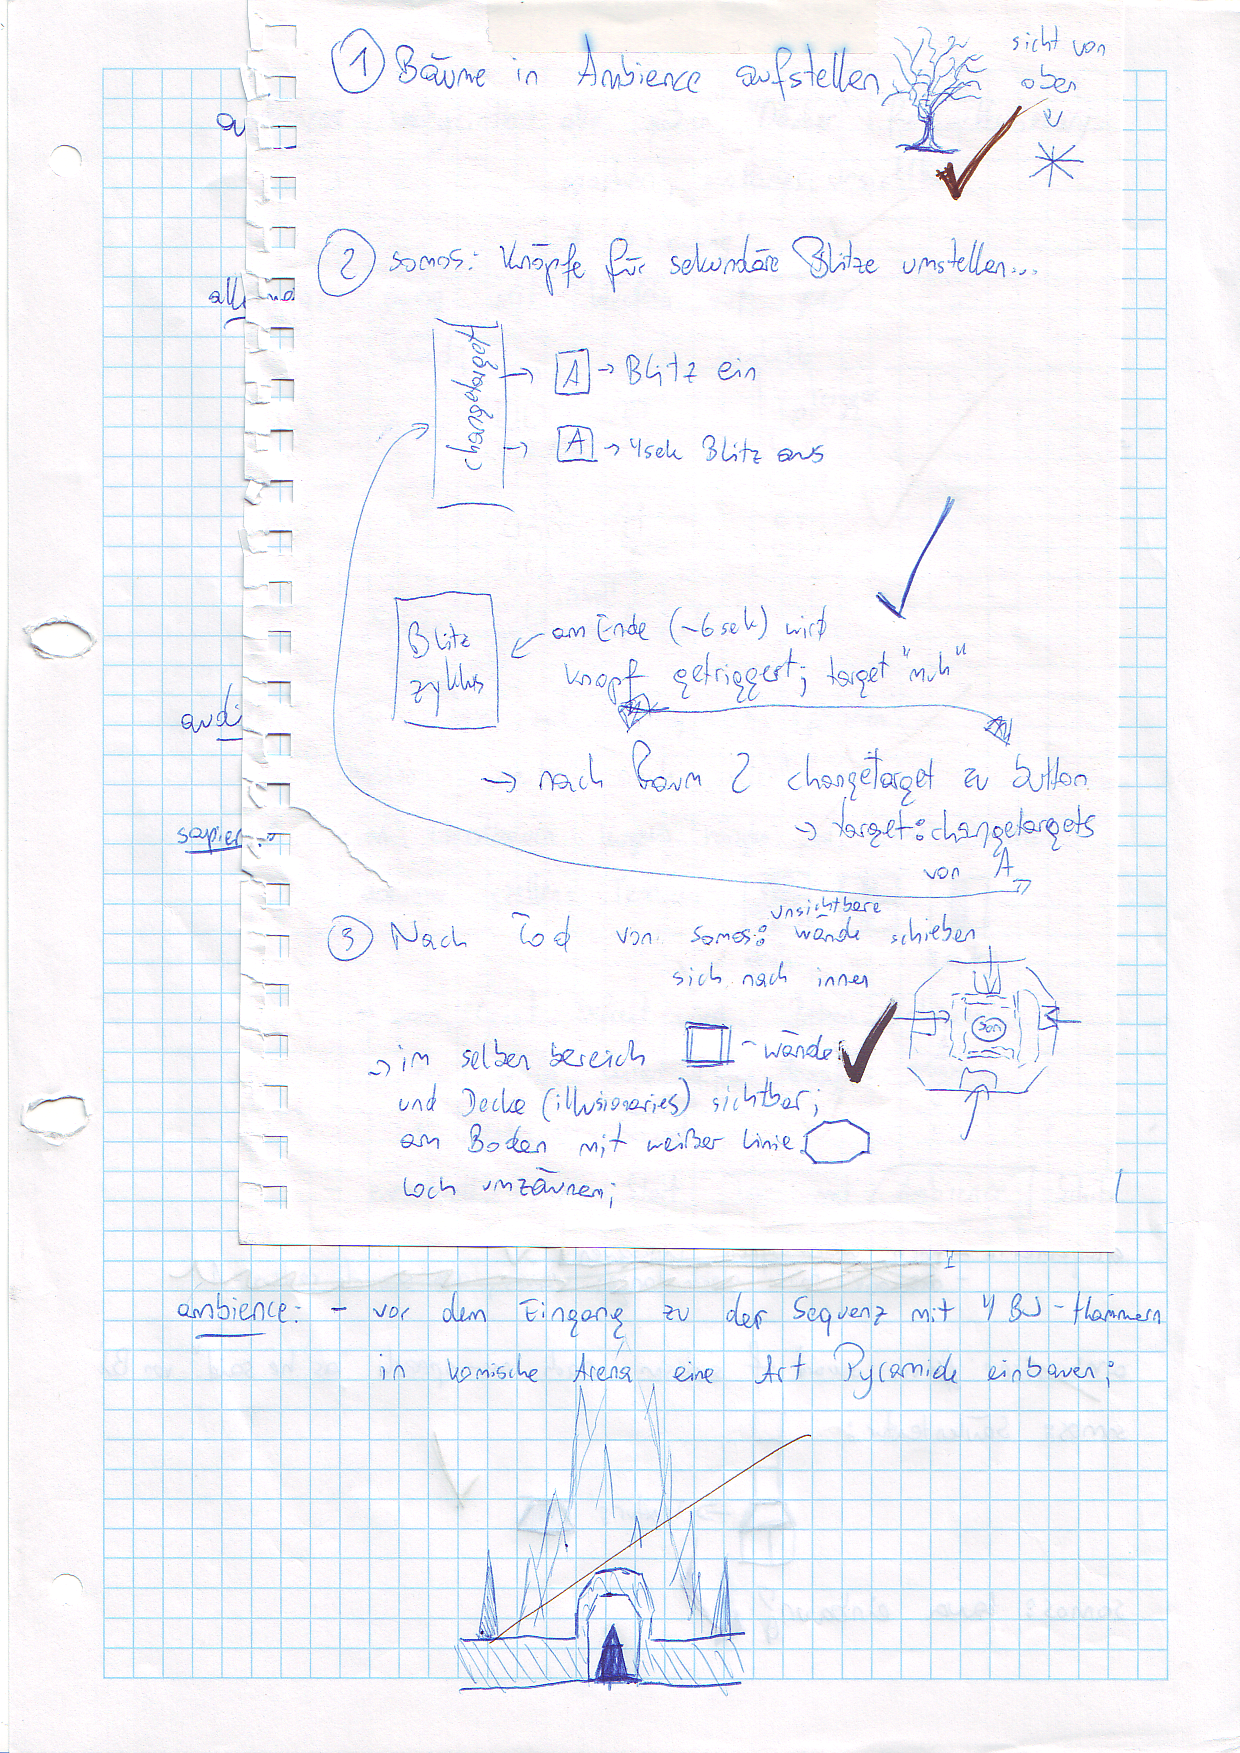 ① Bäume in Ambience aufstellen
sicht von
oben
② somos: Knöpfe für sekundäre Blitze umstellen...
changetarget
→ A → Blitz ein
→ A → 4sek Blitz aus
Blitz
zyklus
am Ende (~6sek) wird
Knopf getriggert; target "muh"
→ nach Raum 2 changetarget zu button
→ target: changetargets
von A
③ Nach Tod von somos: unsichtbare wände schieben
sich nach innen
som
→ im selben bereich - wände
und Decke (illusionaries) sichtbar;
am Boden mit weißer Linie
Loch umzäunen;
audi
sapien
ambience: - vor dem Eingang zu der Sequenz mit 4 BJ-Hämmern
in komische Arena eine Art Pyramide einbauen;